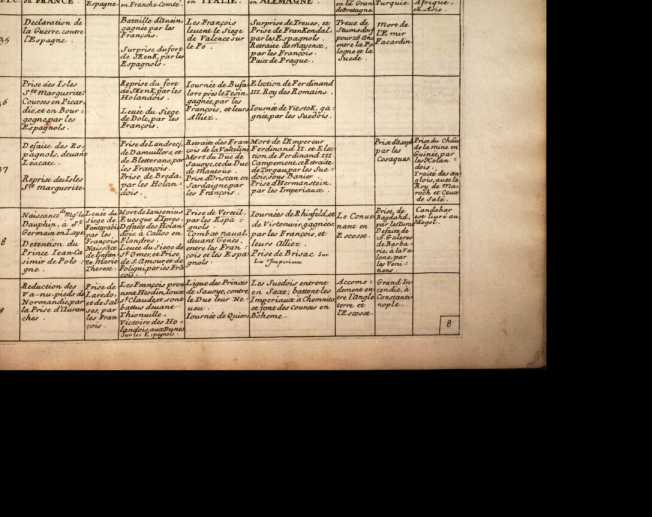 en FRANCE
Espagne
en Franche Comté
en ITALIE
en ALEMAGNE
Turquie
Afrique
35
Declaration de
la Guerre contre
l'Espagne.
Bataille d'Avain,
gagnée par les
François.
Surprise du fort
de SKenK, par les
Espagnols.
Les François
leuent le Siege
de Valence sur
le Po.
Surprise de Treues, et
Prise de FranKendal,
par les Espagnols.
Retraite de Mayence,
par les François.
Paix de Prague.
Treue de
Stumsdorf
pour 26 Ans
entre la Po
logne et la
Suede
Mort de
l'E mir
Facardin.
36
Prise des Isles
Ste Marguerite
Courses en Picar
die, et en Bour
gogne par les
Espagnols.
Reprise du fort
de SKenK, par les
Holandois.
Leuée du Siege
de Dole, par les
François.
Iournée de Bufa
lore pres le Tesin,
gagnée, par les
François, et leurs
Alliez.
Election de Ferdinand
III. Roy des Romains.
Iournée de VitstoK, ga
gnée par les Suedois.
37
Defaite des Es
pagnols, deuant
Leucate.
Reprise des Isles
Ste Marguerite.
Prise de Landrecy,
de Damuillers, et
de Bletterans, par
les François.
Prise de Breda,
par les Holan
dois.
Retraite des Fran
çois de la Valteline
Mort du Duc de
Sauoye, et du Duc
de Mantoue.
Prise d'Oristan en
Sardaigne, par
les François.
Mort de l'Empereur
Ferdinand II. et Elec
tion de Ferdinand III
Campement, et Retraite
de Torgau, par les Sue
dois, sous Banier.
Prise d'Hermanstein,
par les Imperiaux.
Prise d'Asaph
par les
Cosaques
Prise du Chãu
de la mine en
Guinée, par
les Holan
dois.
Traité des an
glois, auec le
Roy de Ma
roch et Ceux
de Salé.
8
Naissance de Mgr le
Dauphin, à St
Germain en Laye
Detention du
Prince Jean Ca
simir de Polo
gne.
Leuée du
Siege de
Fontarabie
par les
François
Naissance
de l'Infan
te Marie
Therese.
Mort de Iansenius
Euesque d'Ipres.
Defaite des Holan
dois à Calloo en
Flandres.
Leuée du Siege de
St Omer, et Prise
de St Amour, et de
Poligni, par les Frã
cois.
Prise de Verceil,
par les Espa
gnols.
Combat naual,
deuant Genes,
entre les Fran
çois et les Espa
gnols.
Iournées de Rhinfeld, et
de Vistenuir, gagnées
par les François, et
leurs Alliez.
Prise de Brisac, sur
Les Imperiaux
Le Conue
nant en
Escosse.
Prise, de
Bagdahd,
par les Turcs
Defaite de
St Galeres
de Barba
rie, à la Va
lone, par
les Veni
tiens.
Candahar
est liuré au
Mogol.
9
Reduction des
Va-nu-pieds de
Normandie, par
la Prise d'Auran
ches.
Prise de
Laredo,
et de Sal
ses, par
les Fran
çois.
Les François pren
nent Hesdin, Iouix
St Claude, et sont
battus deuant
Thionuille.
Victoire des Ho
landois, aux Dunes
sur les Espagnols.
Ligue des Princes
de Sauoye, contre
le Duc leur Ne
ueu.
Iournée de Quiers
Les Suedois entrent
en Saxe, battent les
Imperiaux à Chemnits,
et font des Courses en
Boheme.
Accomo
dement en
tre l'Angle
terre et
l'Escosse.
Grand In
cendie, à
Constanti
nople.
8